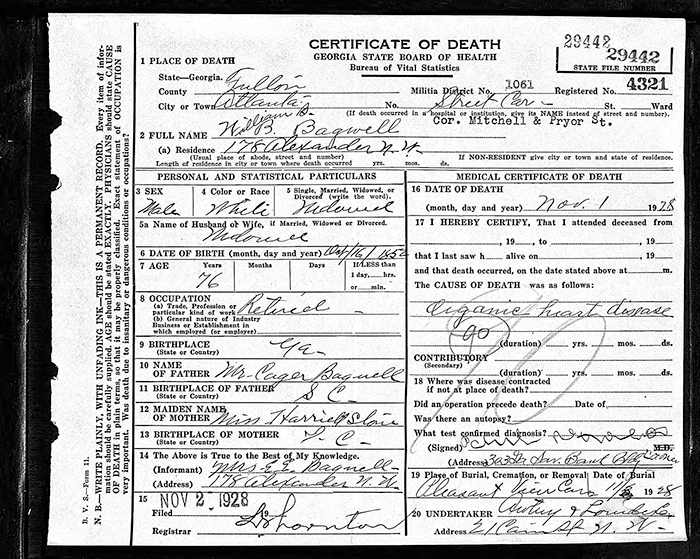 CERTIFICATE OF DEATH
GEORGIA STATE BOARD OF HEALTH
Bureau of Vital Statistics
29442
29442
STATE FILE NUMBER
1 PLACE OF DEATH
State—Georgia.
County Fulton Militia District No. 1061 Registered No. 4321
City or Town Atlanta No. Street Car St. Ward
(If death occurred in a hospital or institution, give its NAME instead of street and number).
William B. Cor. Mitchell & Pryor St.
2 FULL NAME W. B. Bagwell
(a) Residence 178 Alexander N.W.
(Usual place of abode, street and number) If NON-RESIDENT give city or town and state of residence.
Length of residence in city or town where death occurred yrs. mos. ds.
PERSONAL AND STATISTICAL PARTICULARS
3 SEX 4 Color or Race 5 Single, Married, Widowed, or Divorced (write the word).
Male White Widowed
5a Name of Husband or Wife, if Married, Widowed, or Divorced
Widowed
6 DATE OF BIRTH (month, day and year) 16, 1852
7 AGE Years Months Days If LESS than 1 day,....hrs. or....min.
76
8 OCCUPATION
(a) Trade, Profession or particular kind of work Retired
(b) General nature of Industry Business or Establishment in which employed (or employer)
9 BIRTHPLACE (State or Country) Ga
10 NAME OF FATHER Mr. Cager Bagwell
11 BIRTHPLACE OF FATHER (State or Country) S C
12 MAIDEN NAME OF MOTHER Miss Harriet
13 BIRTHPLACE OF MOTHER (State or Country) C
14 The Above is True to the Best of My Knowledge.
(Informant) Mrs. E. E. Bagwell
(Address) 178 Alexander N. W.
15 NOV 2, 1928
Filed 19
Registrar Thornton
MEDICAL CERTIFICATE OF DEATH
16 DATE OF DEATH
(month, day and year) Nov. 1 1928
17 I HEREBY CERTIFY, That I attended deceased
from , 19 , to , 19
that I last saw h alive on , 19
and that death occurred, on the date stated above at m.
The CAUSE OF DEATH was as follows:
Organic heart disease
90
(duration) yrs. mos. ds.
CONTRIBUTORY
(Secondary)
(duration) yrs. mos. ds.
18 Where was disease contracted
if not at place of death?
Did an operation precede death? Date of
Was there an autopsy?
What test confirmed diagnosis?
(Signed) M.D.
(Address) Ga Sav. Bank Bldg
19 Place of Burial, Cremation, or Removal Date of Burial
Pleasant View 1928
20 UNDERTAKER Awtry & Lowndes
Address 21 Cain St N. W.
B. V. S.—Form 11.
N. B.—WRITE PLAINLY, WITH UNFADING INK—THIS IS A PERMANENT RECORD. Every item of information should be carefully supplied. AGE should be stated EXACTLY. PHYSICIANS should state CAUSE OF DEATH in plain terms, so that it may be properly classified. Exact statement of OCCUPATION is very important. Was death due to insanitary or dangerous conditions or occupations?